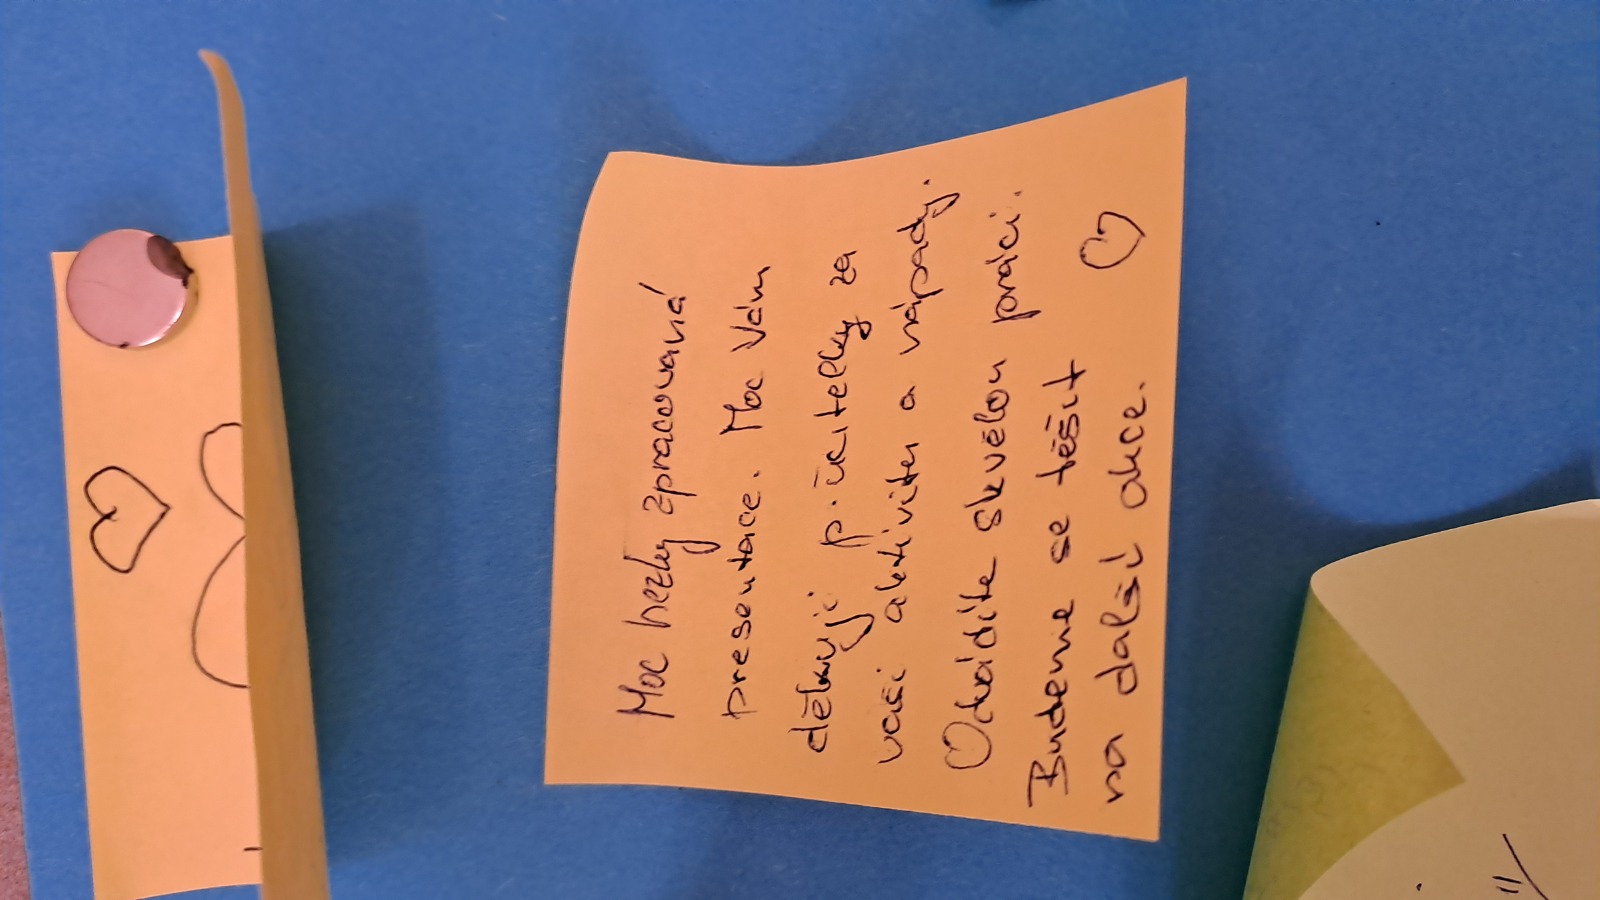 Moc hezky zpracovaná
presentace. Moc Vám
děkuji p. učitelky za
vaši aktivitu a nápady.
Odvádíte skvělou práci.
Budeme se těšit
na další akce.